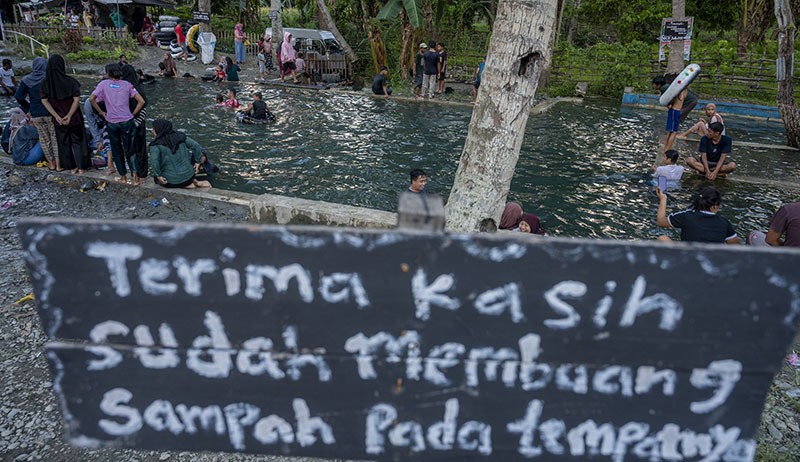 Terima Kasih
sudah Membuang
Sampah Pada tempatnya